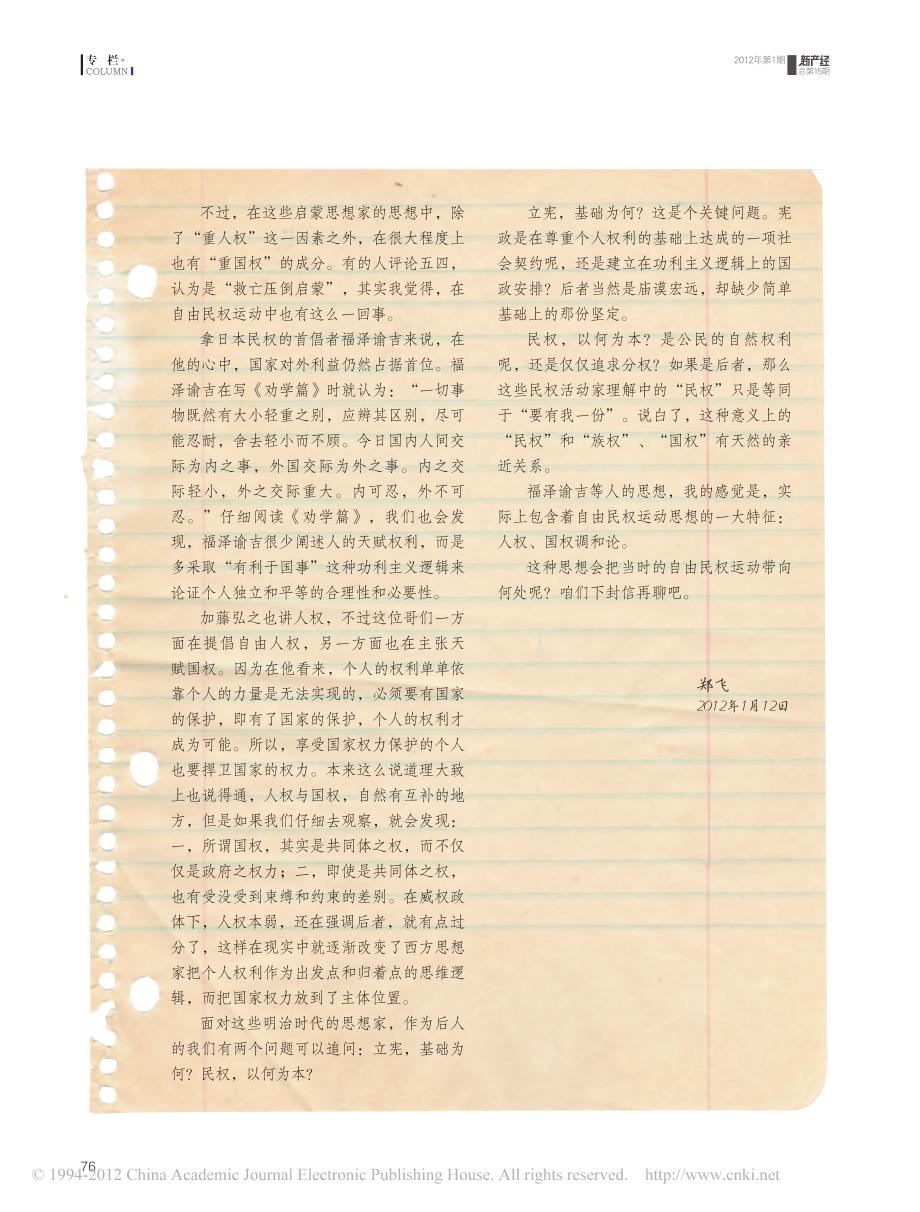 专 栏
COLUMN
2012年第1期
新产经
总第15期
不过，在这些启蒙思想家的思想中，除
了“重人权”这一因素之外，在很大程度上
也有“重国权”的成分。有的人评论五四，
认为是“救亡压倒启蒙”，其实我觉得，在
自由民权运动中也有这么一回事。
拿日本民权的首倡者福泽谕吉来说，在
他的心中，国家对外利益仍然占据首位。福
泽谕吉在写《劝学篇》时就认为：“一切事
物既然有大小轻重之别，应辨其区别，尽可
能忍耐，舍去轻小而不顾。今日国内人间交
际为内之事，外国交际为外之事。内之交
际轻小，外之交际重大。内可忍，外不可
忍。”仔细阅读《劝学篇》，我们也会发
现，福泽谕吉很少阐述人的天赋权利，而是
多采取“有利于国事”这种功利主义逻辑来
论证个人独立和平等的合理性和必要性。
加藤弘之也讲人权，不过这位哥们一方
面在提倡自由人权，另一方面也在主张天
赋国权。因为在他看来，个人的权利单单依
靠个人的力量是无法实现的，必须要有国家
的保护，即有了国家的保护，个人的权利才
成为可能。所以，享受国家权力保护的个人
也要捍卫国家的权力。本来这么说道理大致
上也说得通，人权与国权，自然有互补的地
方，但是如果我们仔细去观察，就会发现：
一，所谓国权，其实是共同体之权，而不仅
仅是政府之权力；二，即使是共同体之权，
也有受没受到束缚和约束的差别。在威权政
体下，人权本弱，还在强调后者，就有点过
分了，这样在现实中就逐渐改变了西方思想
家把个人权利作为出发点和归着点的思维逻
辑，而把国家权力放到了主体位置。
面对这些明治时代的思想家，作为后人
的我们有两个问题可以追问：立宪，基础为
何？民权，以何为本？
立宪，基础为何？这是个关键问题。宪
政是在尊重个人权利的基础上达成的一项社
会契约呢，还是建立在功利主义逻辑上的国
政安排？后者当然是庙谟宏远，却缺少简单
基础上的那份坚定。
民权，以何为本？是公民的自然权利
呢，还是仅仅追求分权？如果是后者，那么
这些民权活动家理解中的“民权”只是等同
于“要有我一份”。说白了，这种意义上的
“民权”和“族权”、“国权”有天然的亲
近关系。
福泽谕吉等人的思想，我的感觉是，实
际上包含着自由民权运动思想的一大特征：
人权、国权调和论。
这种思想会把当时的自由民权运动带向
何处呢？咱们下封信再聊吧。
郑飞
2012年1月12日
76
© 1994-2012 China Academic Journal Electronic Publishing House. All rights reserved. http://www.cnki.net